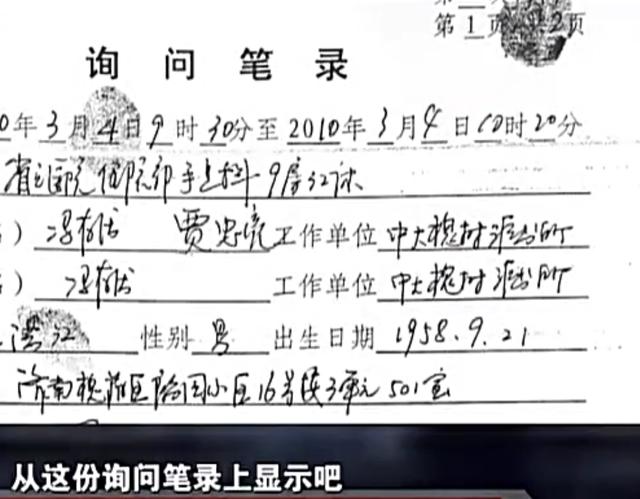 第1页 共2页
询问笔录
0年3月4日9时30分至2010年3月4日10时20分
省立医院住院部手足科9房32床
冯 贾忠 工作单位 中大槐树派出所
冯 工作单位 中大槐树派出所
性别 男 出生日期 1958.9.21
济南槐荫区 小区16号楼3单元501室
从这份询问笔录上显示吧